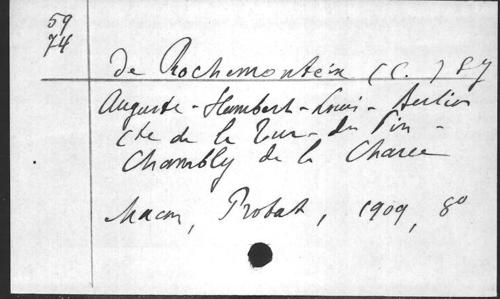 59
74
de Rochemonteix (C.) S J
Auguste-Humbert-Louis-Berlion
Cte de la Tour-du Pin-
Chambly de la Charce
Macon, Protat, 1909, 8º